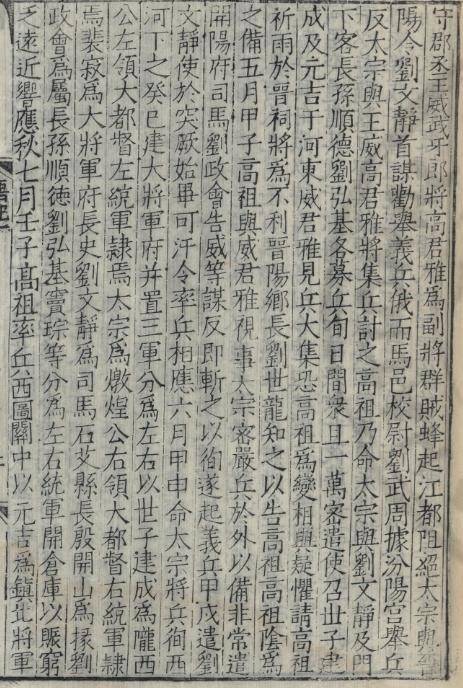 守郡丞王威武牙郎將高君雅爲副將群賊蜂起江都阻絕太宗與晉
陽令劉文靜首謀勸舉義兵俄而馬邑校尉劉武周據汾陽宮舉兵
反太宗與王威高君雅將集兵討之高祖乃命太宗與劉文靜及門
下客長孫順德劉弘基各募兵旬日間衆且一萬密遣使召世子建
成及元吉于河東威君雅見兵大集恐高祖爲變相與疑懼請高祖
祈雨於晉祠將爲不利晉陽鄉長劉世龍知之以告高祖高祖陰爲
之備五月甲子高祖與威君雅視事太宗密嚴兵於外以備非常遣
開陽府司馬劉政會告威等謀反即斬之以徇遂起義兵甲戌遣劉
文靜使於突厥始畢可汗令率兵相應六月甲申命太宗將兵徇西
河下之癸巳建大將軍府并置三軍分爲左右以世子建成爲隴西
公左領大都督左統軍隸焉太宗爲燉煌公右領大都督右統軍隸
焉裴寂爲大將軍府長史劉文靜爲司馬石艾縣長殷開山爲掾劉
政會爲屬長孫順德劉弘基竇琮等分爲左右統軍開倉庫以賑窮
乏遠近響應秋七月壬子高祖率兵西圖關中以元吉爲鎮北將軍